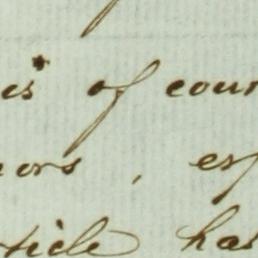 es* of cour
nors, esp
rticle has